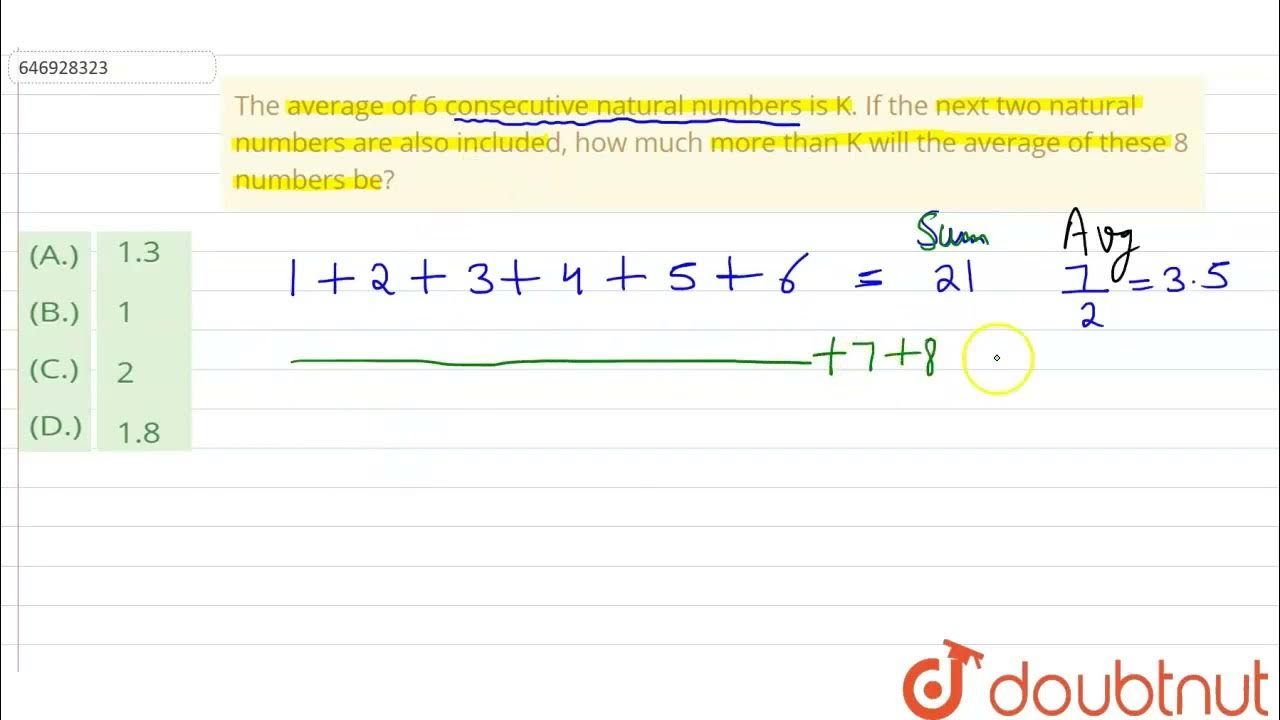 646928323
The average of 6 consecutive natural numbers is K. If the next two natural
numbers are also included, how much more than K will the average of these 8
numbers be?
(A.) 1.3
(B.) 1
(C.) 2
(D.) 1.8
Sum Avg
1 + 2 + 3 + 4 + 5 + 6 = 21 7/2 = 3.5
+ 7 + 8
doubtnut